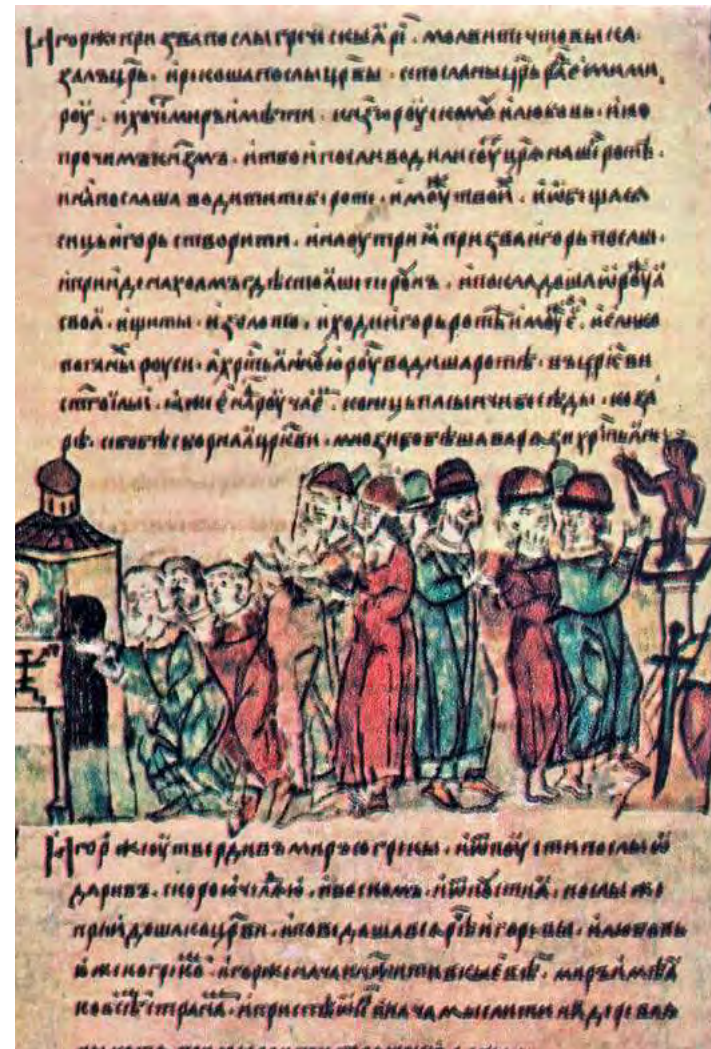 Игорже призва послы греческыꙗ р҃ . молвите что вы ка
залъ цр҃ь . и рекоша послы цр҃вы . се посла ны цр҃ь
роу . и хоч миръ имѣти . роуско и любовь . и ко
прочимъ кн҃змъ . и твои посли водили соу цр҃ѧ наши ротѣ .
и нꙑ послаша водитъ тебе роте . и моу твои . и ѡбещасѧ
сице игорь створити . и наоутриꙗ призва игорь послы .
и прииде на холмъ гдѣ стоꙗше пероунъ . и покладоша ороу
своꙗ . и щиты . и золото . и ходи игорь ротѣ и моу е . и елико
поганы роуси . а хр҃тьꙗноую роу водиша ротѣ . въ цр҃кви
ст҃го ильи . ꙗже е на роучае . конець пасынчи беседы . и коза
рѣ . се бо бѣ сборнаꙗ цр҃кви . мнози бо бѣша варѧзи хр҃тьꙗни
Игор же оутвердивъ миръ со греки . и ѿпоусти послы ѡ
даривъ . скорою и челѧ . и воскомъ . и ѿпоусти ꙗ . послы же
приидоша ко цр҃ви . и поведаша вся рѣ игоревы . и любовь
ю же ко греко . игорже нача кн҃жити в киевѣ . миръ имѣꙗ
ко всѣ страна . и приспѣ ѡсе . нача мыслити на дерев